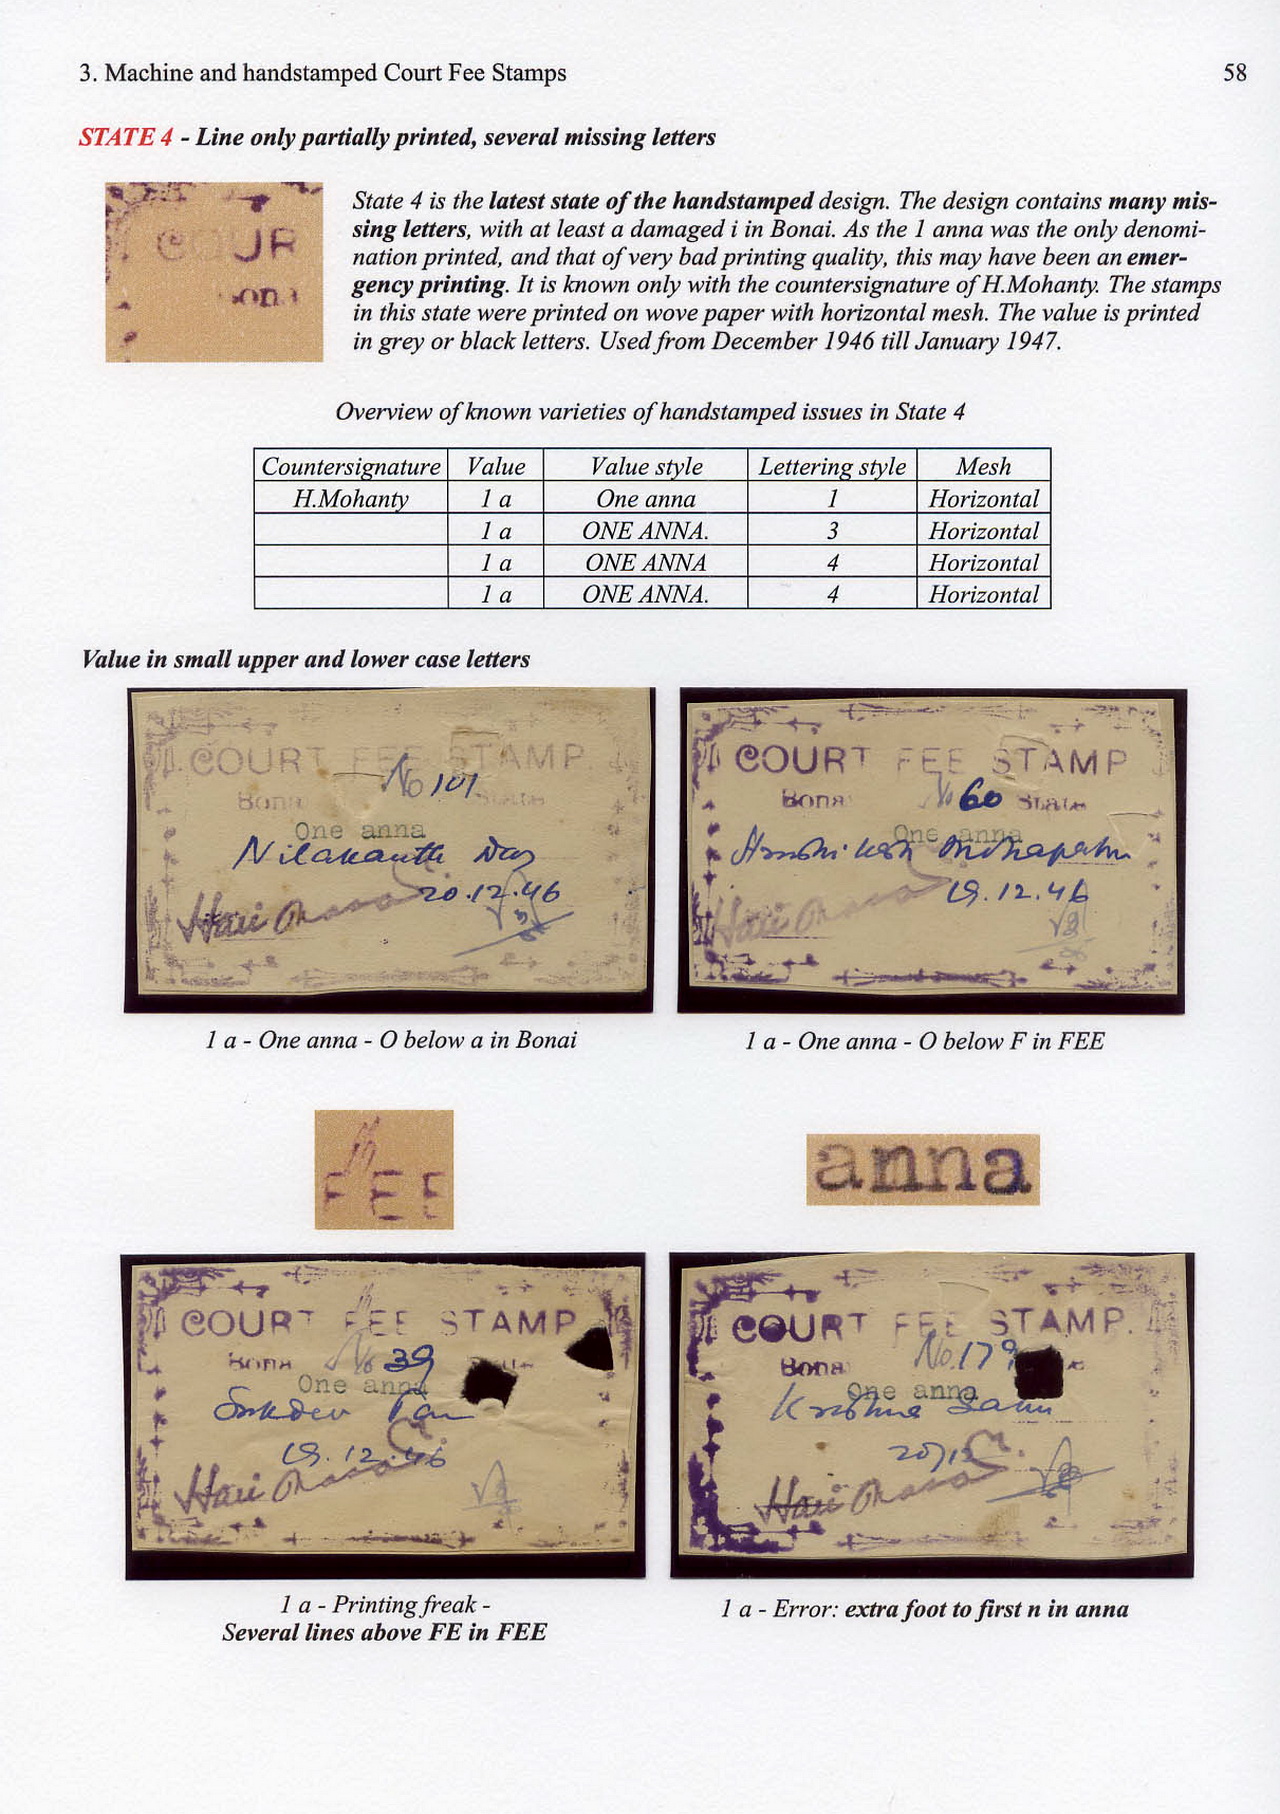 3. Machine and handstamped Court Fee Stamps
58
STATE 4 - Line only partially printed, several missing letters
COUR
ona
State 4 is the latest state of the handstamped design. The design contains many mis-
sing letters, with at least a damaged i in Bonai. As the 1 anna was the only denomi-
nation printed, and that of very bad printing quality, this may have been an emer-
gency printing. It is known only with the countersignature of H.Mohanty. The stamps
in this state were printed on wove paper with horizontal mesh. The value is printed
in grey or black letters. Used from December 1946 till January 1947.
Overview of known varieties of handstamped issues in State 4
Countersignature Value Value style Lettering style Mesh
H.Mohanty 1 a One anna 1 Horizontal
1 a ONE ANNA. 3 Horizontal
1 a ONE ANNA 4 Horizontal
1 a ONE ANNA. 4 Horizontal
Value in small upper and lower case letters
COURT FEE STAMP.
Bona No 101 State
One anna
Nilakantha Das
20.12.46
Hari
COURT FEE STAMP
Bona No 60 State
One anna
19.12.46
Hari
1 a - One anna - O below a in Bonai
1 a - One anna - O below F in FEE
FEE
anna
COURT FEE STAMP
Bona No 39
One anna
19.12.46
Hari
COURT FEE STAMP.
Bona No. 179
One anna
Krishna Sahu
Hari
1 a - Printing freak -
Several lines above FE in FEE
1 a - Error: extra foot to first n in anna